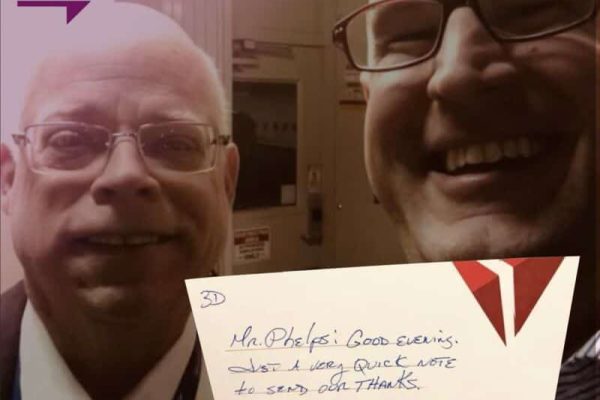 3D
Mr. Phelps: Good evening.
Just a very quick note
to send our thanks.